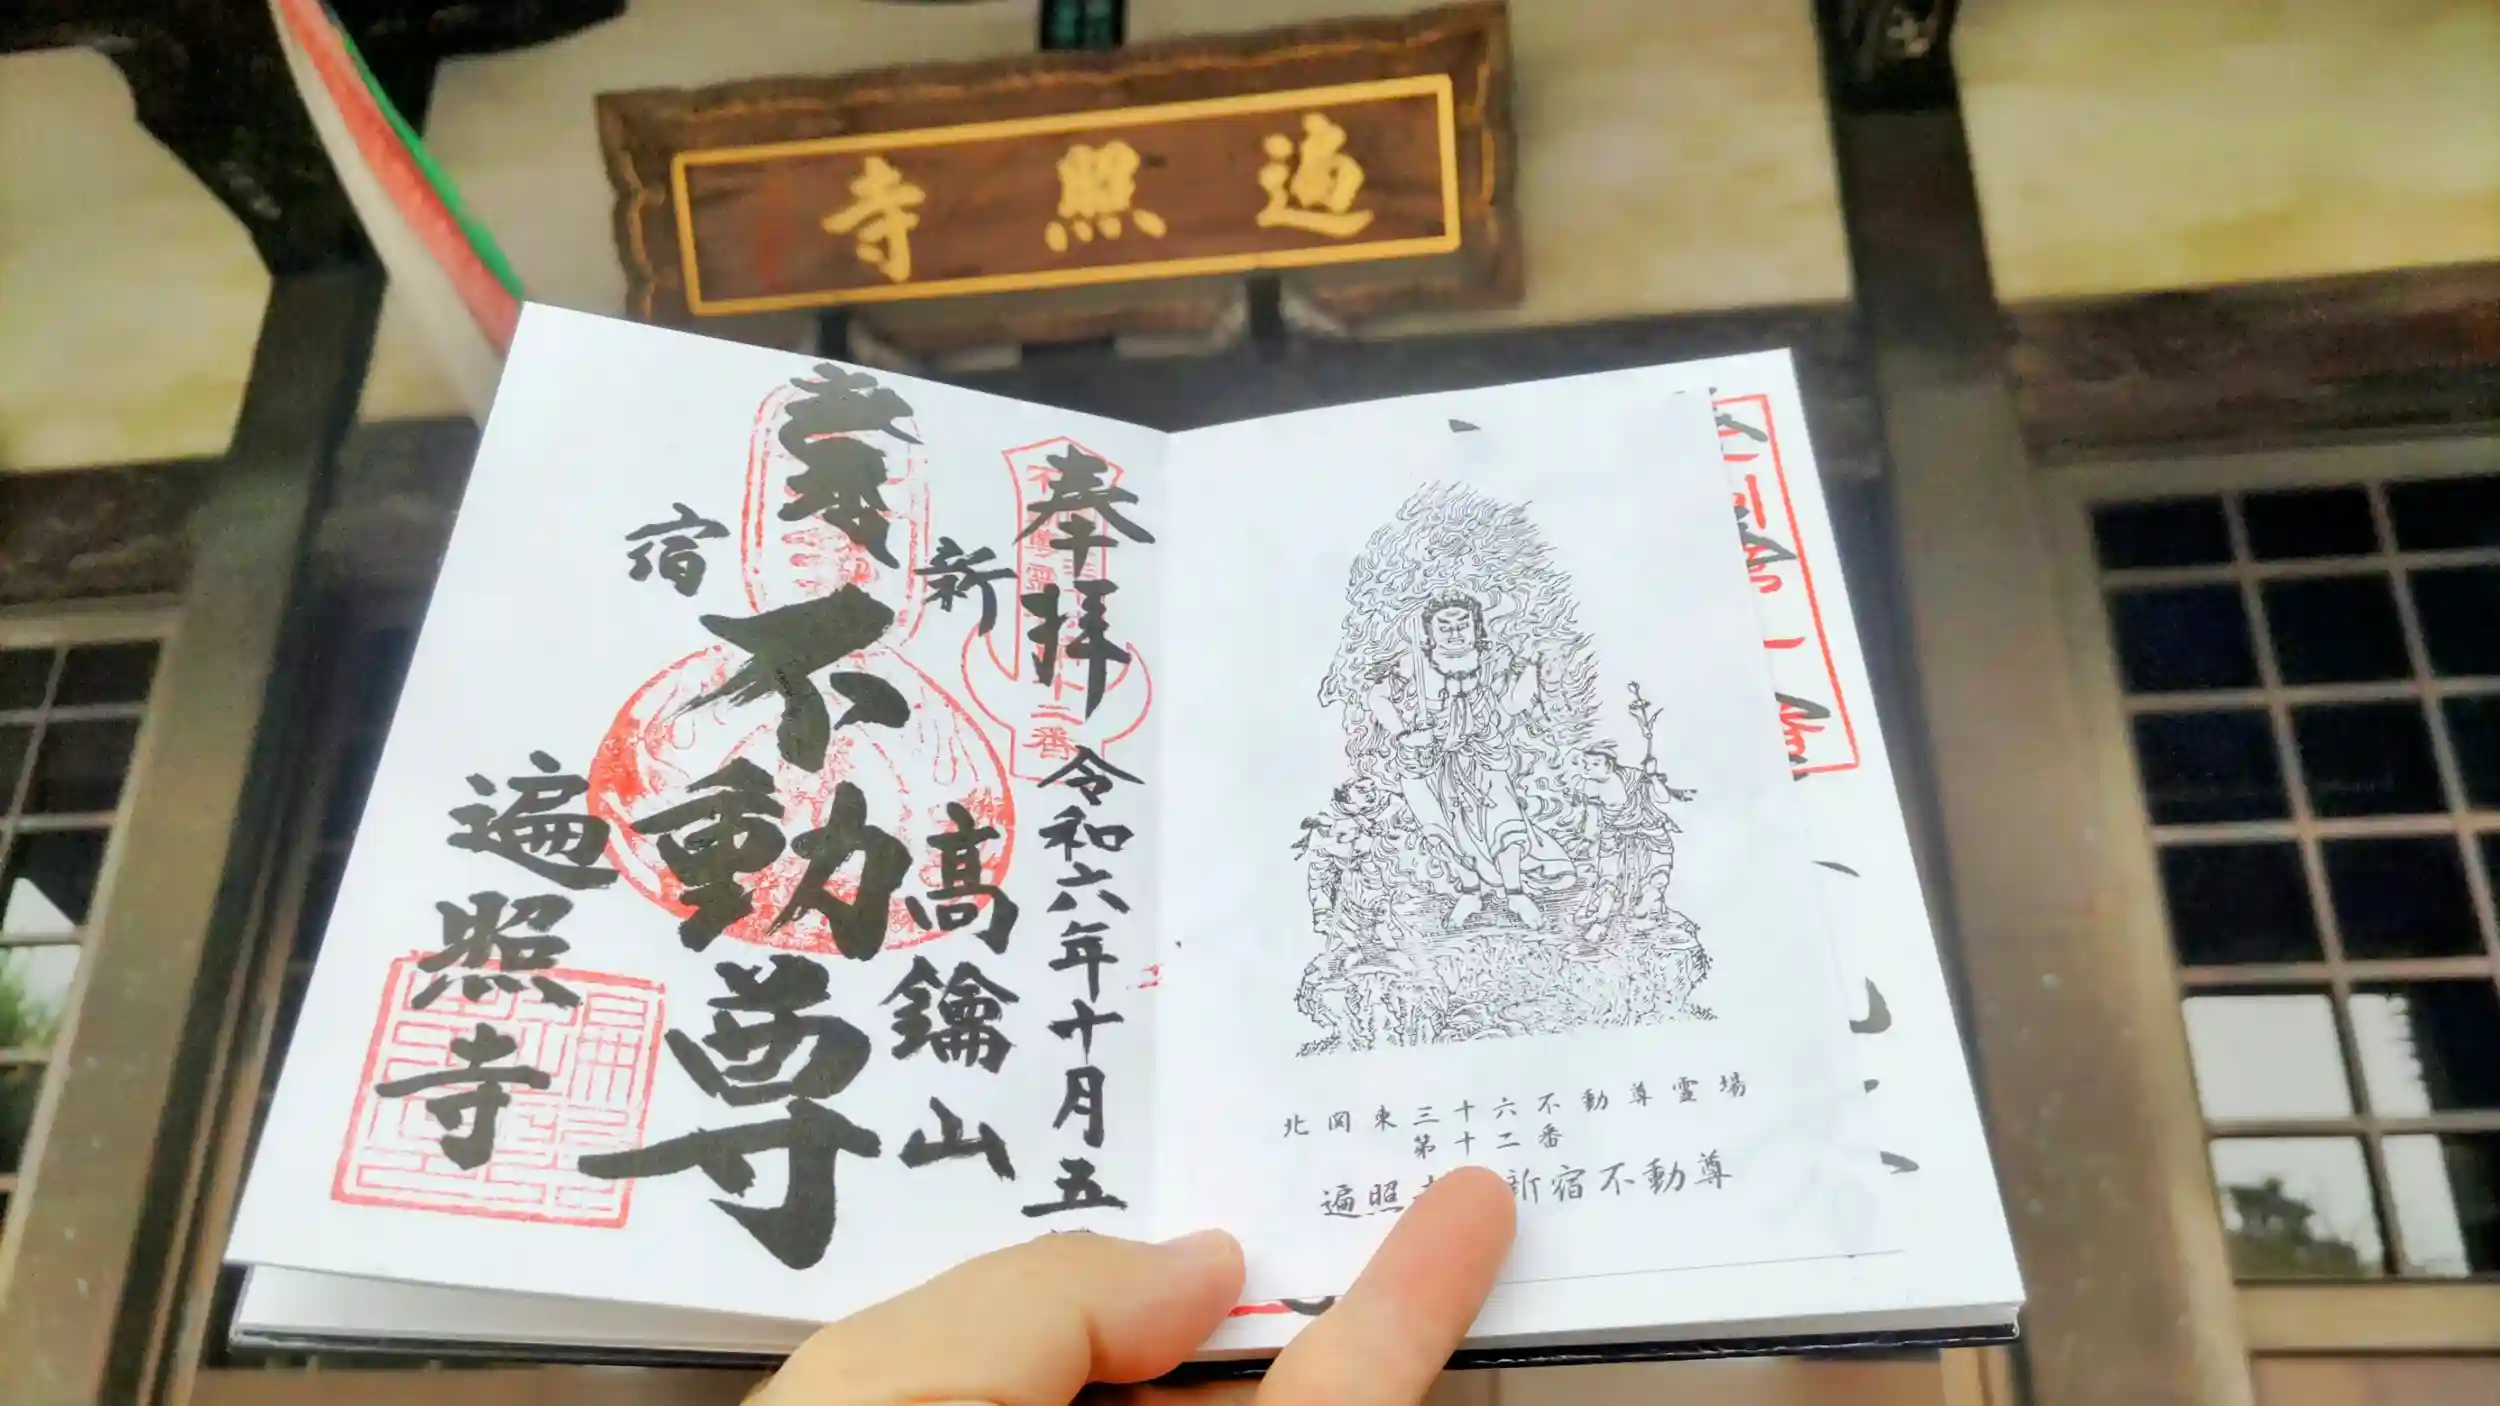 遍照寺
奉拝
令和六年十月五
新宿
高鑰山
不動尊
遍照寺
二番
北関東三十六不動尊霊場
第十二番
遍照 新宿不動尊